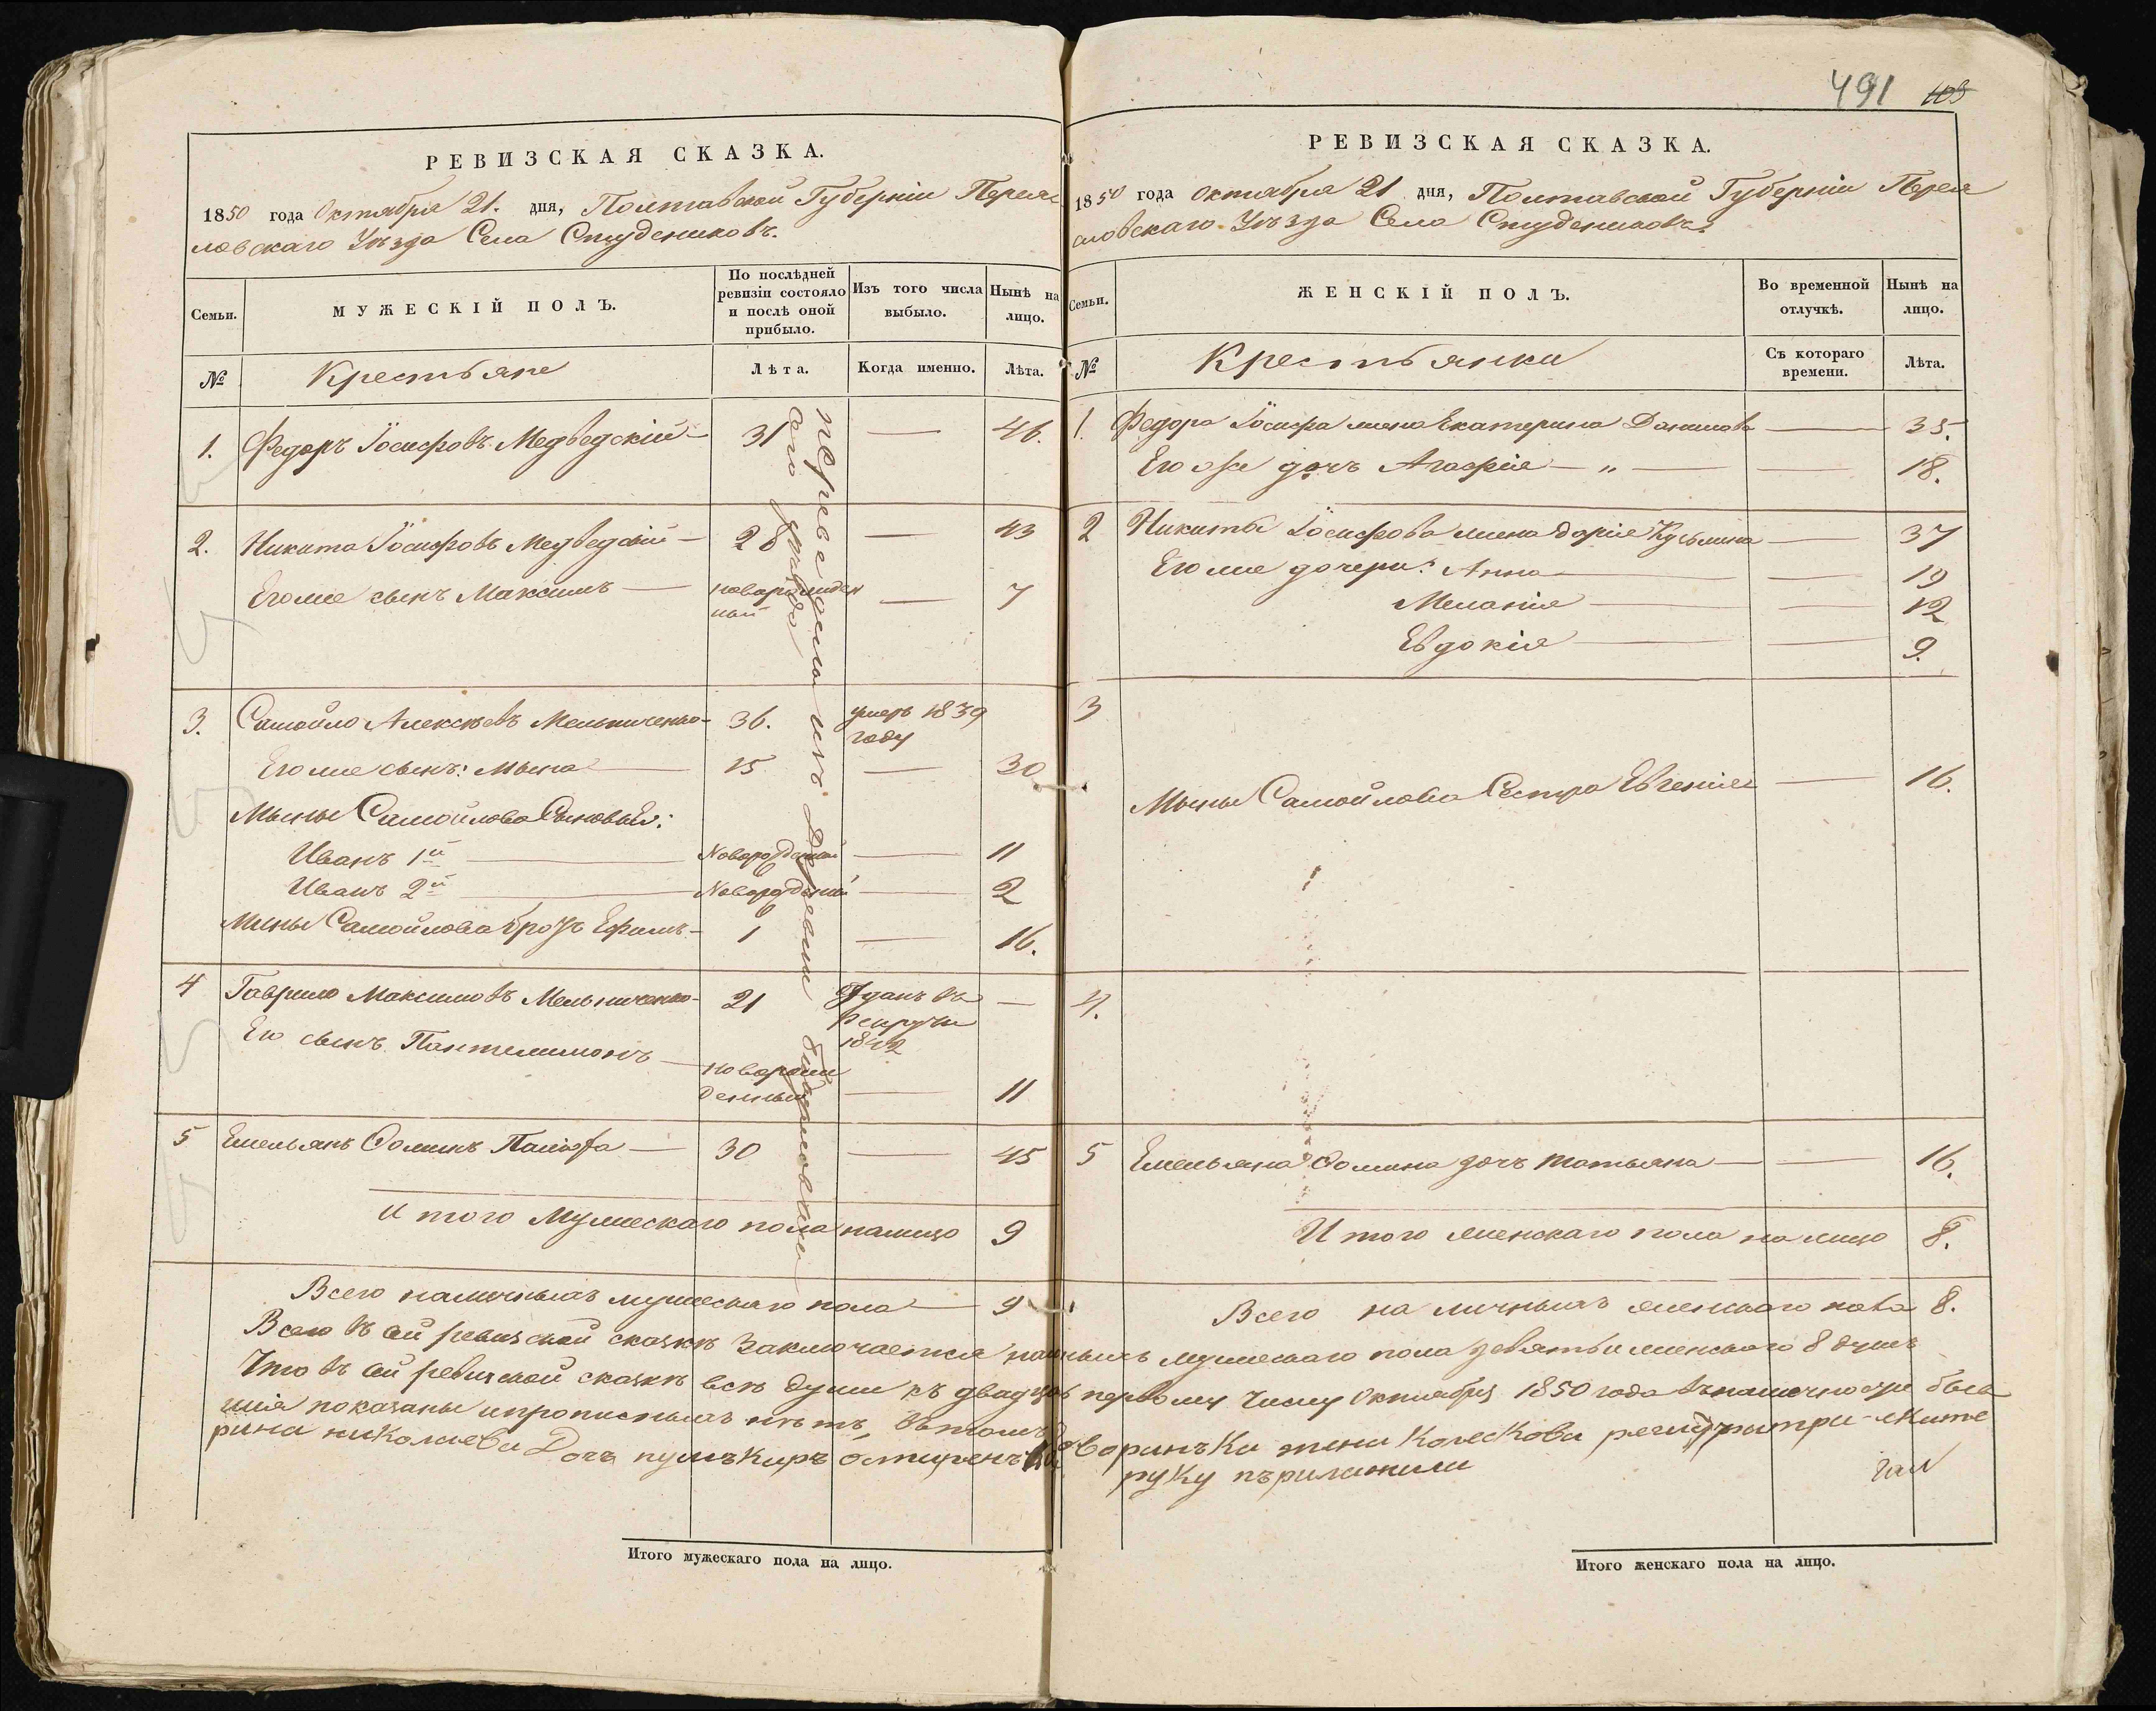 491 103
РЕВИЗСКАЯ СКАЗКА.
1850 года Октября 21. дня, Полтавской Губерніи Переяс
ловскаго Уѣзда Села Студениковъ.
Семьи.
МУЖЕСКІЙ ПОЛЪ.
По послѣдней ревизіи состояло и послѣ оной прибыло.
Изъ того числа выбыло.
Нынѣ на лицо.
№
Крестьяне
Лѣта.
Когда именно.
Лѣта.
1. Федоръ Іосифовъ Медведскій — 31 — 46.
2. Никита Іосифовъ Медведскій — 28 — 43
Егоже сынъ Максимъ — новорожден
ный — 7
3. Самойло Алексѣевъ Мельниченко — 36. умеръ 1839
году
Егоже сынъ: Мына — 15 — 30
Мыны Самойлова Сыновья:
Иванъ 1й — Новорожденый — 11
Иванъ 2й — Новорожденый — 2
Мины Самойлова братъ Ефимъ — 1 — 16.
4 Гаврило Максимовъ Мельниченко — 21 Отданъ въ —
рекруты
1842
Его сынъ Пантелимонъ — новорож
денный — 11
5 Емельянъ Фоминъ — 30 — 45
Итого Мужескаго пола налицо 9
переведены изъ деревни
сего уѣзда
Всего наличныхъ мужескаго пола — 9
РЕВИЗСКАЯ СКАЗКА.
1850 года Октября 21 дня, Полтавской Губерніи Перея
словскаго Уѣзда Села Студениковъ.
Семьи.
ЖЕНСКІЙ ПОЛЪ.
Во временной отлучкѣ.
Нынѣ на лицо.
№
Крестьянки
Съ котораго времени.
Лѣта.
1. Федора Іосифа жена Екатерина Данилова — 35.
Его же дочь Агафія — „ — 18.
2 Никиты Іосифова жена Дарія Кузьмина — 37
Егоже дочери: Анна — 19
Меланія — 12
Евдокія — 9.
3
Мыны Самойлова Сестра Евгенія — 16.
4.
5 Емельяна Фомина дочь Татьяна — 16.
Итого женскаго пола налицо 8.
Всего наличныхъ женскаго пола 8.
Всего въ сей ревизской сказкѣ заключается наличныхъ мужескаго пола девять и женскаго 8 душъ
Что въ сей ревизской сказкѣ всѣ души къ двадцать первому числу Октября 1850 года въ наличности быв
шія показаны и прописныхъ нѣтъ, въ томъ дворянъка жена Колескова регистратри Кате
рина николаева Дочь
руку пъриложили
Итого мужескаго пола на лицо.
Итого женскаго пола на лицо.